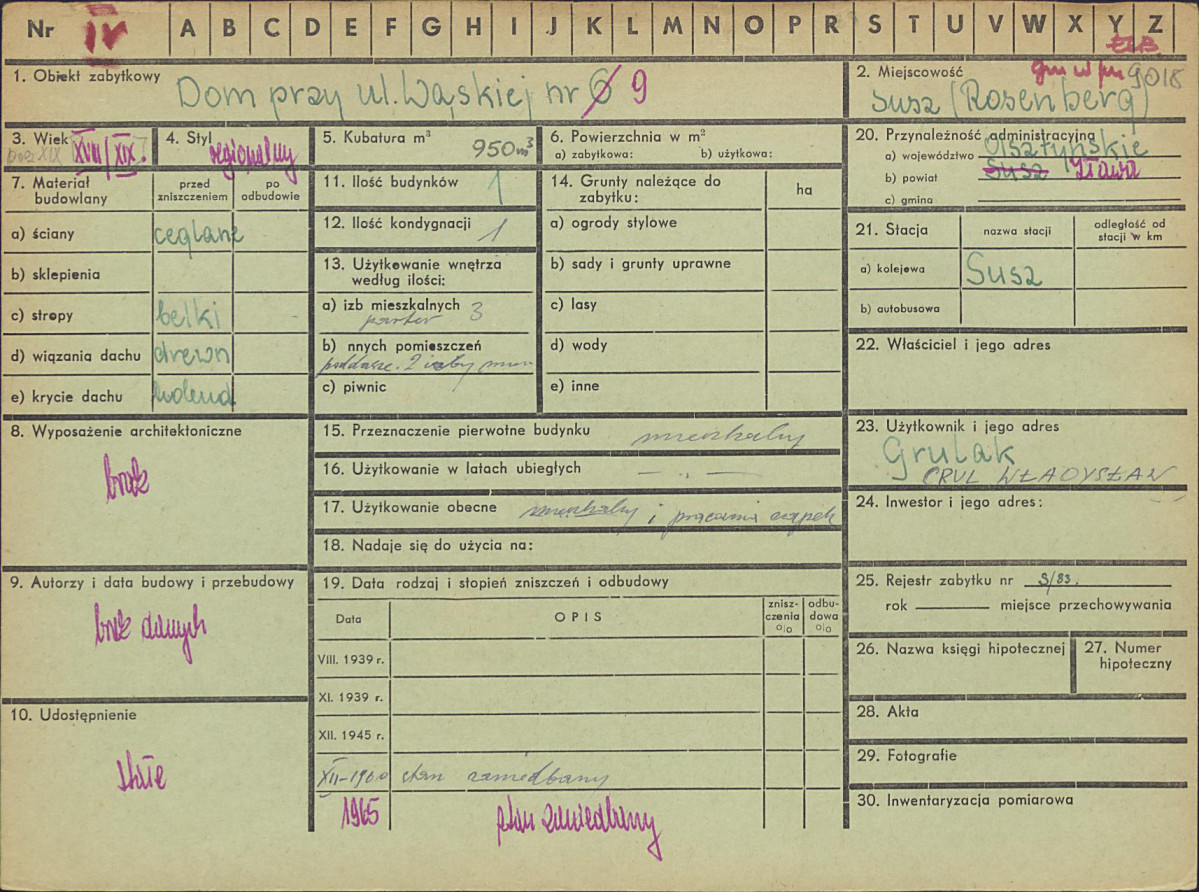 Nr IV A B C D E F G H I J K L M N O P R S T U V W X Y Z
ELB.
1. Obiekt zabytkowy
Dom przy ul. Wąskiej nr 6 9
2. Miejscowość gm w m 9018
Susz (Rosenberg)
3. Wiek XVIII/XIX.
pocz XIX
4. Styl regionalny
5. Kubatura m³ 950 m³
6. Powierzchnia w m²
a) zabytkowa: b) użytkowa:
20. Przynależność administracyjna
a) województwo Olsztyńskie
b) powiat Susz Iława
c) gmina
7. Materiał budowlany
przed zniszczeniem
po odbudowie
a) ściany ceglane
b) sklepienia
c) stropy belki
d) wiązania dachu drewn
e) krycie dachu holend
11. Ilość budynków 1
12. Ilość kondygnacji 1
13. Użytkowanie wnętrza
według ilości:
a) izb mieszkalnych 3
parter
b) nnych pomieszczeń
poddasze. 2 izby
c) piwnic
14. Grunty należące do
zabytku:
ha
a) ogrody stylowe
b) sady i grunty uprawne
c) lasy
d) wody
e) inne
21. Stacja
nazwa stacji
odległość od
stacji w km
a) kolejowa Susz
b) autobusowa
22. Właściciel i jego adres
8. Wyposażenie architektoniczne
brak
15. Przeznaczenie pierwotne budynku mieszkalny
16. Użytkowanie w latach ubiegłych — „ —
17. Użytkowanie obecne mieszkalny i pracownia czapek
18. Nadaje się do użycia na:
23. Użytkownik i jego adres
Grulak
CRUL WŁADYSŁAW
24. Inwestor i jego adres:
9. Autorzy i data budowy i przebudowy
brak danych
19. Data rodzaj i stopień zniszczeń i odbudowy
Data
OPIS
znisz-
czenia
%
odbu-
dowa
%
VIII. 1939 r.
XI. 1939 r.
XII. 1945 r.
XII-1960 stan zaniedbany
1965 stan zaniedbany
25. Rejestr zabytku nr S/83.
rok miejsce przechowywania
26. Nazwa księgi hipotecznej
27. Numer
hipoteczny
10. Udostępnienie
stałe
28. Akta
29. Fotografie
30. Inwentaryzacja pomiarowa